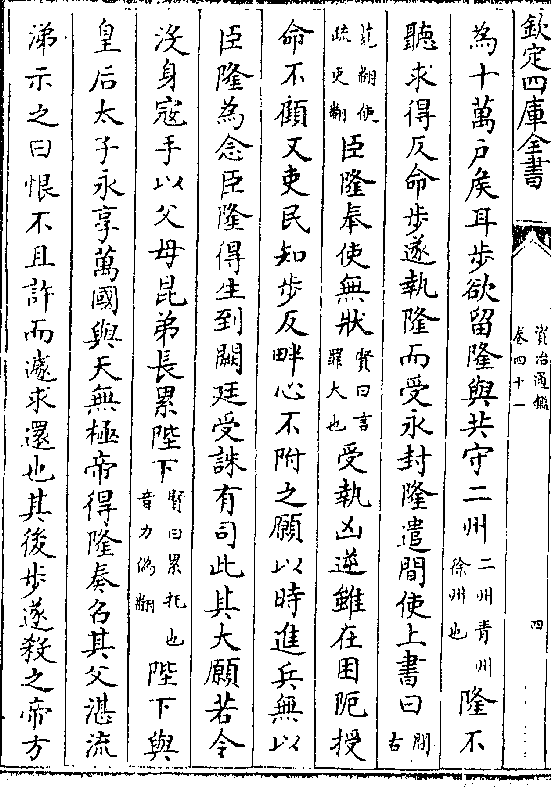 欽定四庫全書
資治通鑑
卷四十一
四
為十萬户矦耳歩欲留隆與共守二州二州青州徐州也隆不
聽求得反命歩遂執隆而受永封隆遣間使上書曰間古
莧翻使疏吏翻臣隆奉使無狀賢曰言罪大也受執凶逆雖在困阨授
命不顧又吏民知歩反畔心不附之願以時進兵無以
臣隆為念臣隆得生到闕廷受誅有司此其大願若令
没身寇手以父母昆弟長累陛下賢曰累托也音力偽翻陛下與
皇后太子永享萬國與天無極帝得隆奏召其父湛流
涕示之曰恨不且許而遽求還也其後歩遂殺之帝方